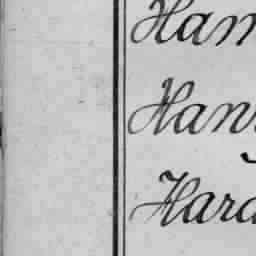 Ham
Han
Hard